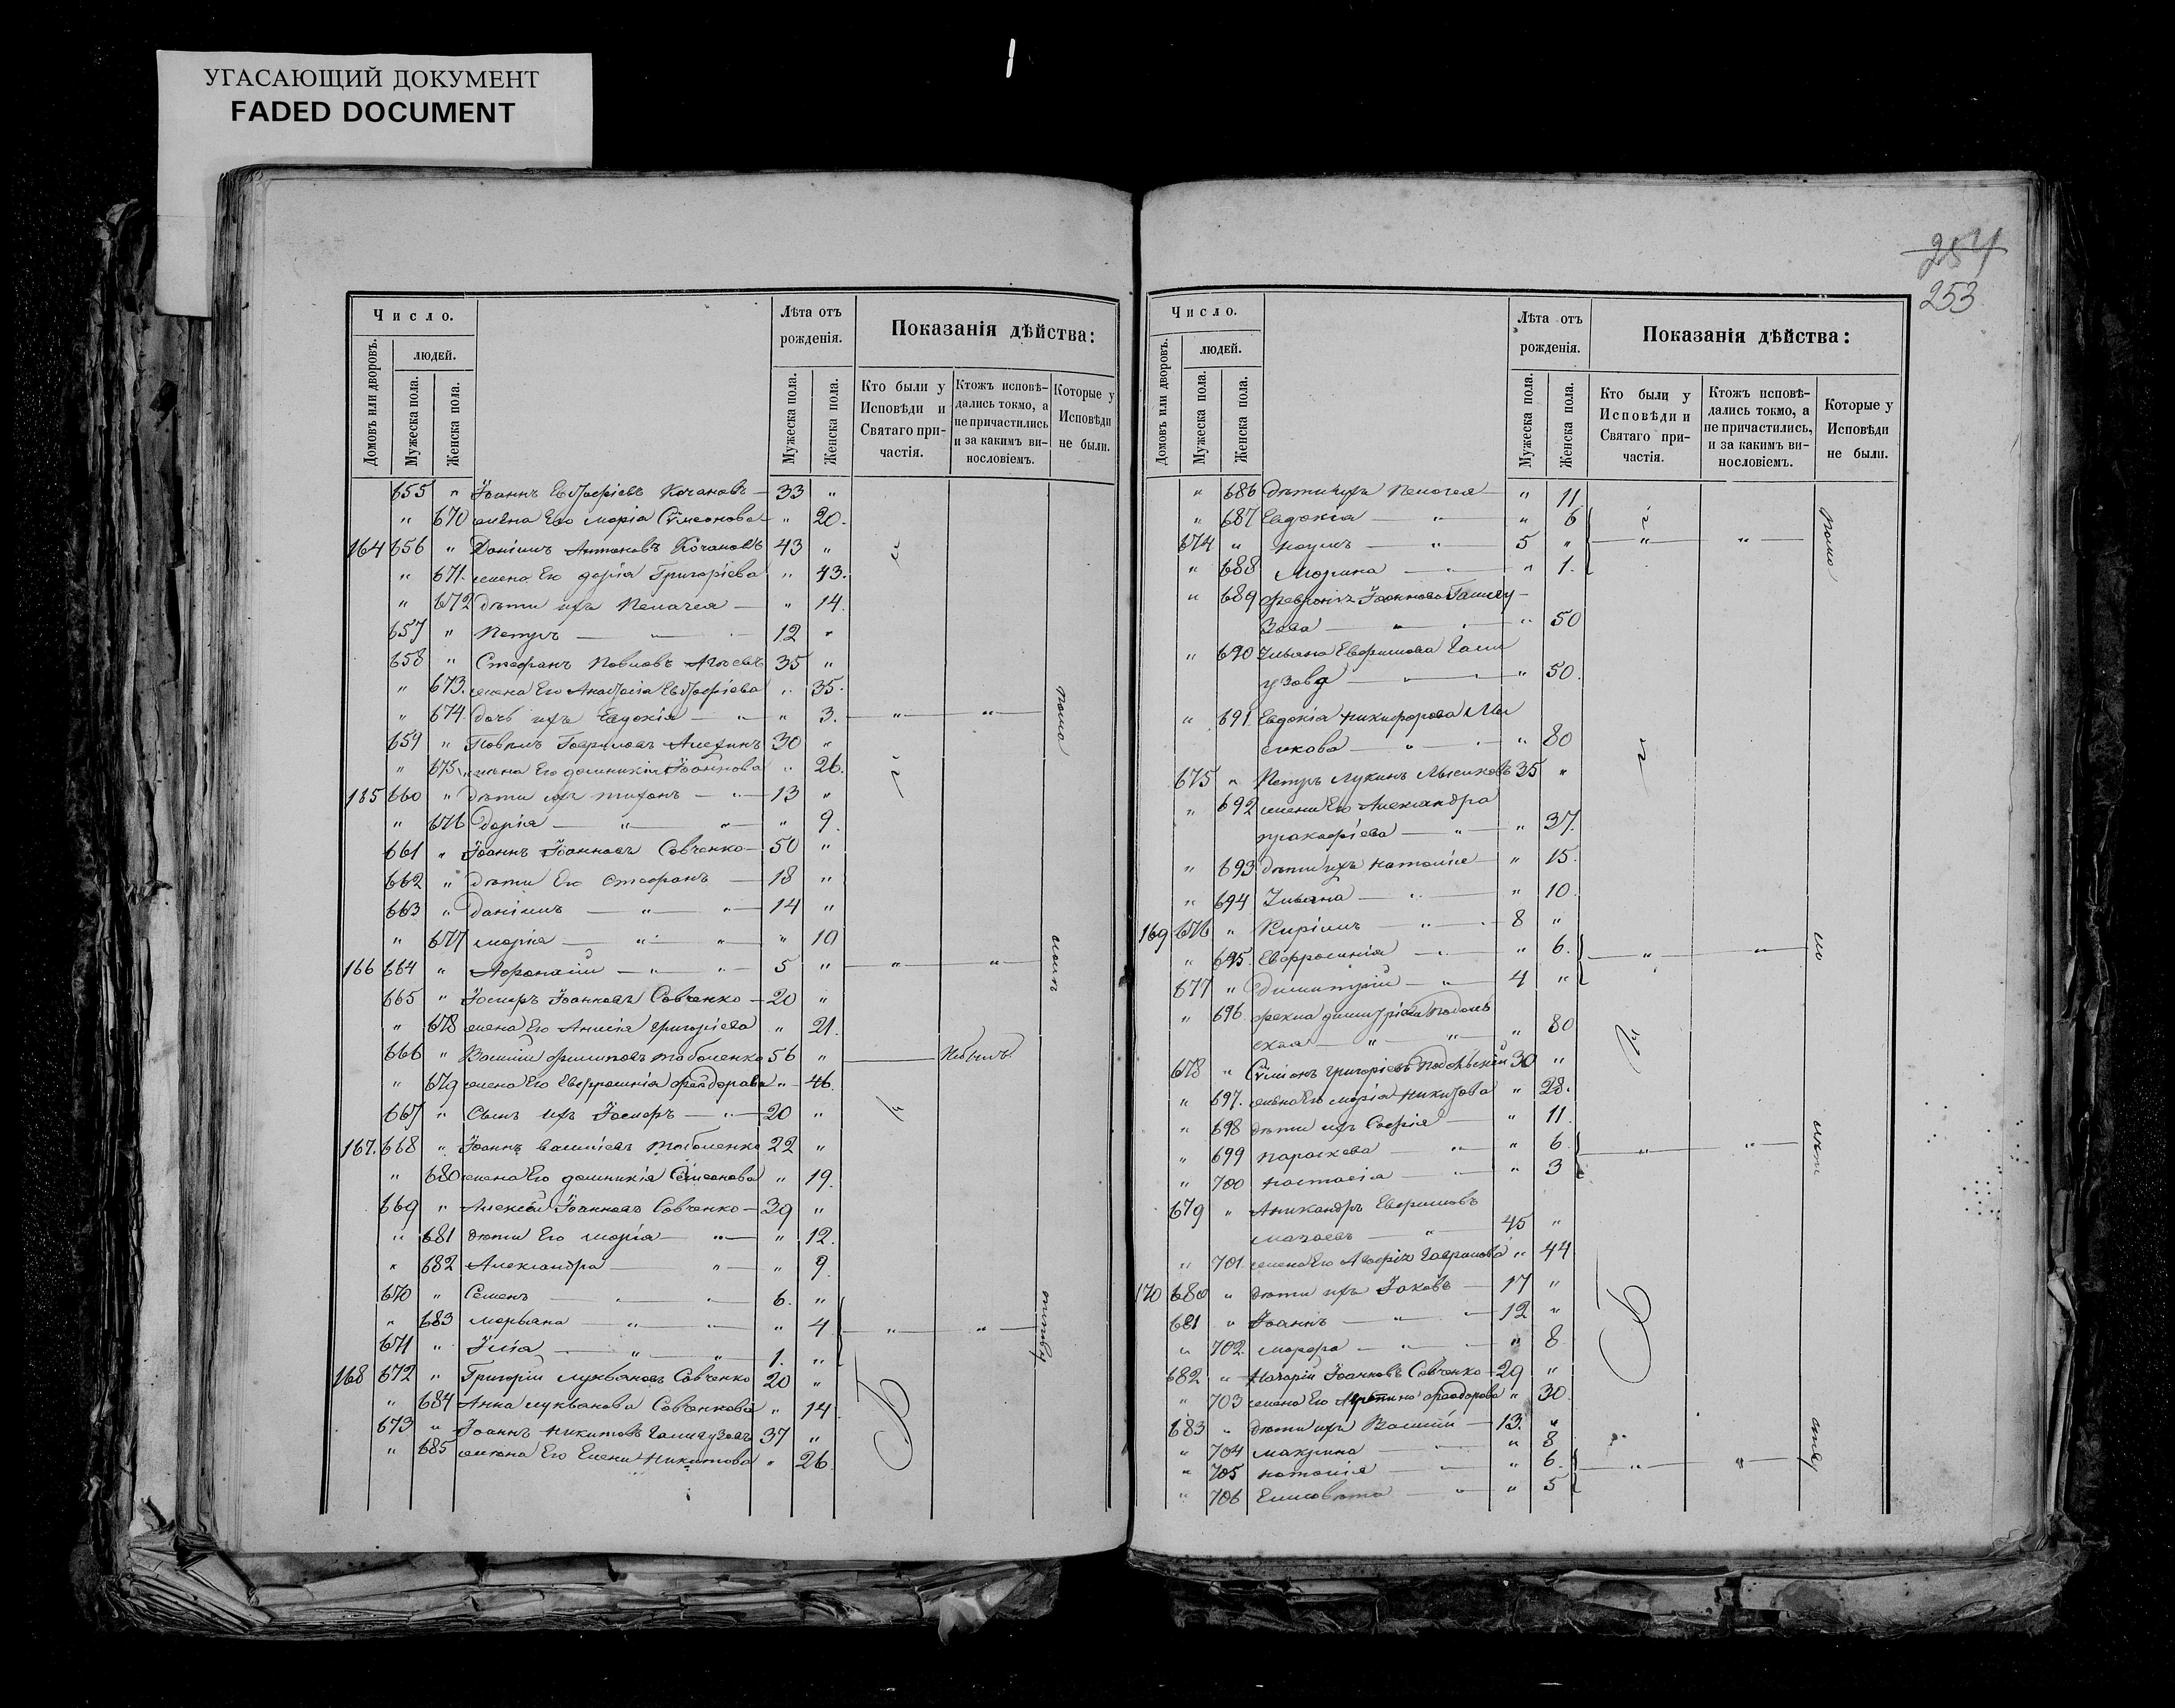 УГАСАЮЩИЙ ДОКУМЕНТ
FADED DOCUMENT
254
253
Число.
людей.
Домовъ или дворовъ.
Мужеска пола.
Женска пола.
Лѣта отъ рожденія.
Мужеска пола.
Женска пола.
Показанія дѣйства:
Кто были у Исповѣди и Святаго причастія.
Ктожъ исповѣдались токмо, а не причастились и за какимъ винословіемъ.
Которые у Исповѣди не были.
655 " Іоаннъ Евстафіевъ Кочановъ — 33 "
" 670 жена Его Марія Сѵмеонова " 20.
164 656 " Даніилъ Антоновъ Кочановъ 43 "
" 671. жена Его Дарія Григоріева " 43.
" 672 дѣти ихъ Пелагея — " 14.
657 " Петръ — " — 12 "
658 " Стефанъ Павловъ 35 "
" 673. жена Его Анастасія Евстафіева " 35.
" 674. дочь ихъ Евдокія — " — " 3. — " — " —
659 " Павелъ Гавриловъ 30 "
" 675. жена Его Домникія Іоаннова " 26.
165 660 " дѣти ихъ Тихонъ — " — 13 "
" 676 Дарія — " — " — " 9.
661 " Іоаннъ Іоанновъ Савченко — 50 "
662 " дѣти Его Стефанъ — 18 "
663 " Даніилъ — " — " — 14 "
" 677 Марія — " — " — " 10
166 664 " Афанасій — " — " — 5 " — " — " —
665 " Іосифъ Іоанновъ Савченко — 20 "
" 678 жена Его Анисія Григоріева " 21.
666 " Василій Филиповъ 56 " — Небылъ
" 679 жена Его Евфросинія Феодорова " 46.
667 " Сынъ ихъ Іосифъ — " — 20 "
167. 668 " Іоаннъ Василіевъ 22 "
" 680 жена Его Домникія Сѵмеонова " 19.
669 " Алексѣй Іоанновъ Савченко — 39 "
" 681 дѣти Его Марія — " — " 12.
" 682 Александра — " — " 9.
670 " Семенъ — " — " 6. "
" 683 Марьяна — " — " — " 4 — " — " —
671 " Илія — " — " — 1. "
168 672 " Григорій Лукьяновъ Савченко 20 "
" 684 Анна Лукьянова Савченкова " 14
673 " Іоаннъ Никитовъ 37 "
" 685 жена Его Елена Никитова " 26.
Число.
людей.
Домовъ или дворовъ.
Мужеска пола.
Женска пола.
Лѣта отъ рожденія.
Мужеска пола.
Женска пола.
Показанія дѣйства:
Кто были у Исповѣди и Святаго причастія.
Ктожъ исповѣдались токмо, а не причастились, и за какимъ винословіемъ.
Которые у Исповѣди не были.
" 686 дѣти ихъ Пелагея — " 11
" 687 Евдокія — " — " 6
674 " Наумъ — " 5 " — " — " —
" 688 Марина — " — " 1.
" 689 Февронія Іоаннова
зова — " — " 50
" 690 Ульяна Евфимова
узова — " — " 50.
" 691. Евдокія Никифорова
кова — " — " 80
675 " Петръ Лукинъ 35 "
" 692 жена Его Александра
Прокофіева — " — " 37.
" 693 дѣти ихъ Наталія — " 15.
" 694 Ульяна — " — " 10.
169 676 " Кирилъ — " — 8 "
" 695. Евфросинія — " — " 6. — " — " —
677 " Димитрій — " — 4 "
" 696. Фекла Димитріева
ская — " — " — " 80
678 " Сѵміонъ Григоріевъ 30 "
" 697. жена Его Марія Никитова " 28.
" 698 дѣти ихъ Софія — " 11
" 699 Параскева — " — " 6 — " — " —
" 700 Настасія — " — " 3
679 " Аникандръ Евфимовъ
— " — 45 "
" 701 жена Его Гаврилова " 44
170 680 " дѣти ихъ Іаковъ — 17 "
681 " Іоаннъ — " — " — 12 "
" 702. Марфа — " — " 8
682 " Назарій Іоанновъ Савченко — 29 "
" 703 жена Его Феодорова " 30.
683 " дѣти ихъ Василій — 13. "
" 704 Макрина — " — " 8
" 705 Наталія — " — " 6. — " — " —
" 706 Елисавета — " — " 5